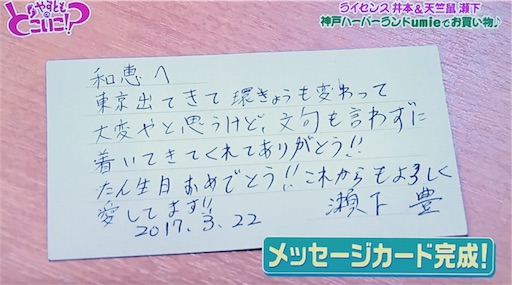 やすとものどこいこ!?
ライセンス 井本&天竺鼠 瀬下
神戸ハーバーランドumieでお買い物♪
和恵へ
東京出てきて環きょうも変わって
大変やと思うけど、文句も言わずに
着いてきてくれてありがとう!!
たん生日おめでとう!!これからもよろしく
愛してます!!
瀬下 豊
2017.3.22
メッセージカード完成!